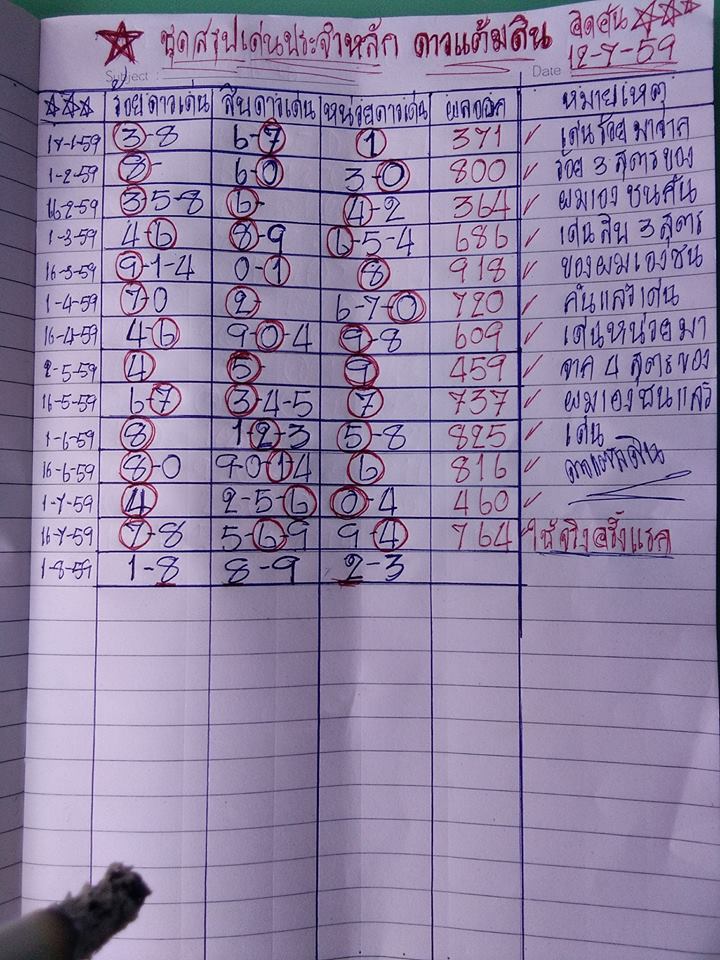 ชุดสรุปเด่นประจำหลัก ดาวแต้มดิน
Subject :
Date 12-7-59
ร้อยดาวเด่น สิบดาวเด่น หน่วยดาวเด่น ผลออก หมายเหตุ
17-1-59 3-8 6-7 1 371 ✓ เด่นร้อยมาจาก
1-2-59 8- 6-0 3-0 800 ✓ ร้อย 3 สูตรของ
16-2-59 3-5-8 6- 4-2 364 ✓ ผมเองชนกัน
1-3-59 4-6 8-9 6-5-4 686 ✓ เด่นสิบ 3 สูตร
16-3-59 9-1-4 0-1 8 918 ✓ ของผมเองชน
1-4-59 7-0 2- 6-7-0 720 ✓ กันแล้วเด่น
16-4-59 4-6 9-0-4 9-8 609 ✓ เด่นหน่วยมา
2-5-59 4 5- 9 459 ✓ จาก 4 สูตรของ
16-5-59 6-7 3-4-5 7 737 ✓ ผมเองชนแล้ว
1-6-59 8 1-2-3 5-8 825 ✓ เด่น
16-6-59 8-0 9-0-1-4 6 816 ✓
1-7-59 4 2-5-6 0-4 460 ✓
16-7-59 7-8 5-6-9 9-4 764 ใช้จริงครั้งแรก
1-8-59 1-8 8-9 2-3